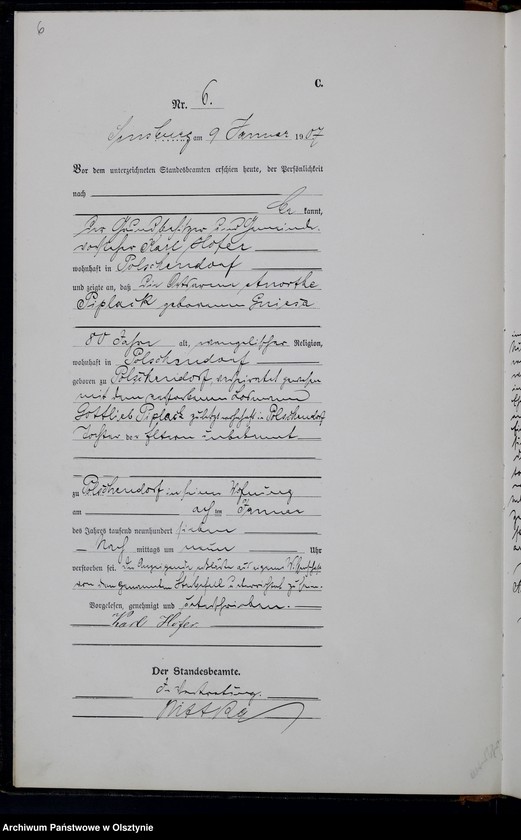 6
C.
Nr. 6.
Sensburg am 9 Januar 1907
Vor dem unterzeichneten Standesbeamten erschien heute, der Persönlichkeit
nach
be kannt,
der Grundbesitzer und Gemeinde-
vorsteher Karl Hofer
wohnhaft in Polschendorf
und zeigte an, daß die Ortsarme Anorthe
Piplack geborenen Gniesa
80 Jahre alt, evangelischer Religion,
wohnhaft in Polschendorf
geboren zu Polschendorf, verheiratet gewesen
mit dem verstorbenen Losmann
Gottlieb Piplack zuletzt wohnhaft in Polschendorf
Tochter der Eltern unbekannt
zu Polschendorf in seiner Wohnung
am acht ten Januar
des Jahres tausend neunhundert sieben
Nach mittags um neun Uhr
verstorben sei. Der Anzeigende erklärte aus eigener Wissenschaft
von dem genannten Sterbefall unterrichtet zu sein.
Vorgelesen, genehmigt und unterschrieben.
Karl Hofer
Der Standesbeamte.
In Vertretung.
Archiwum Państwowe w Olsztynie